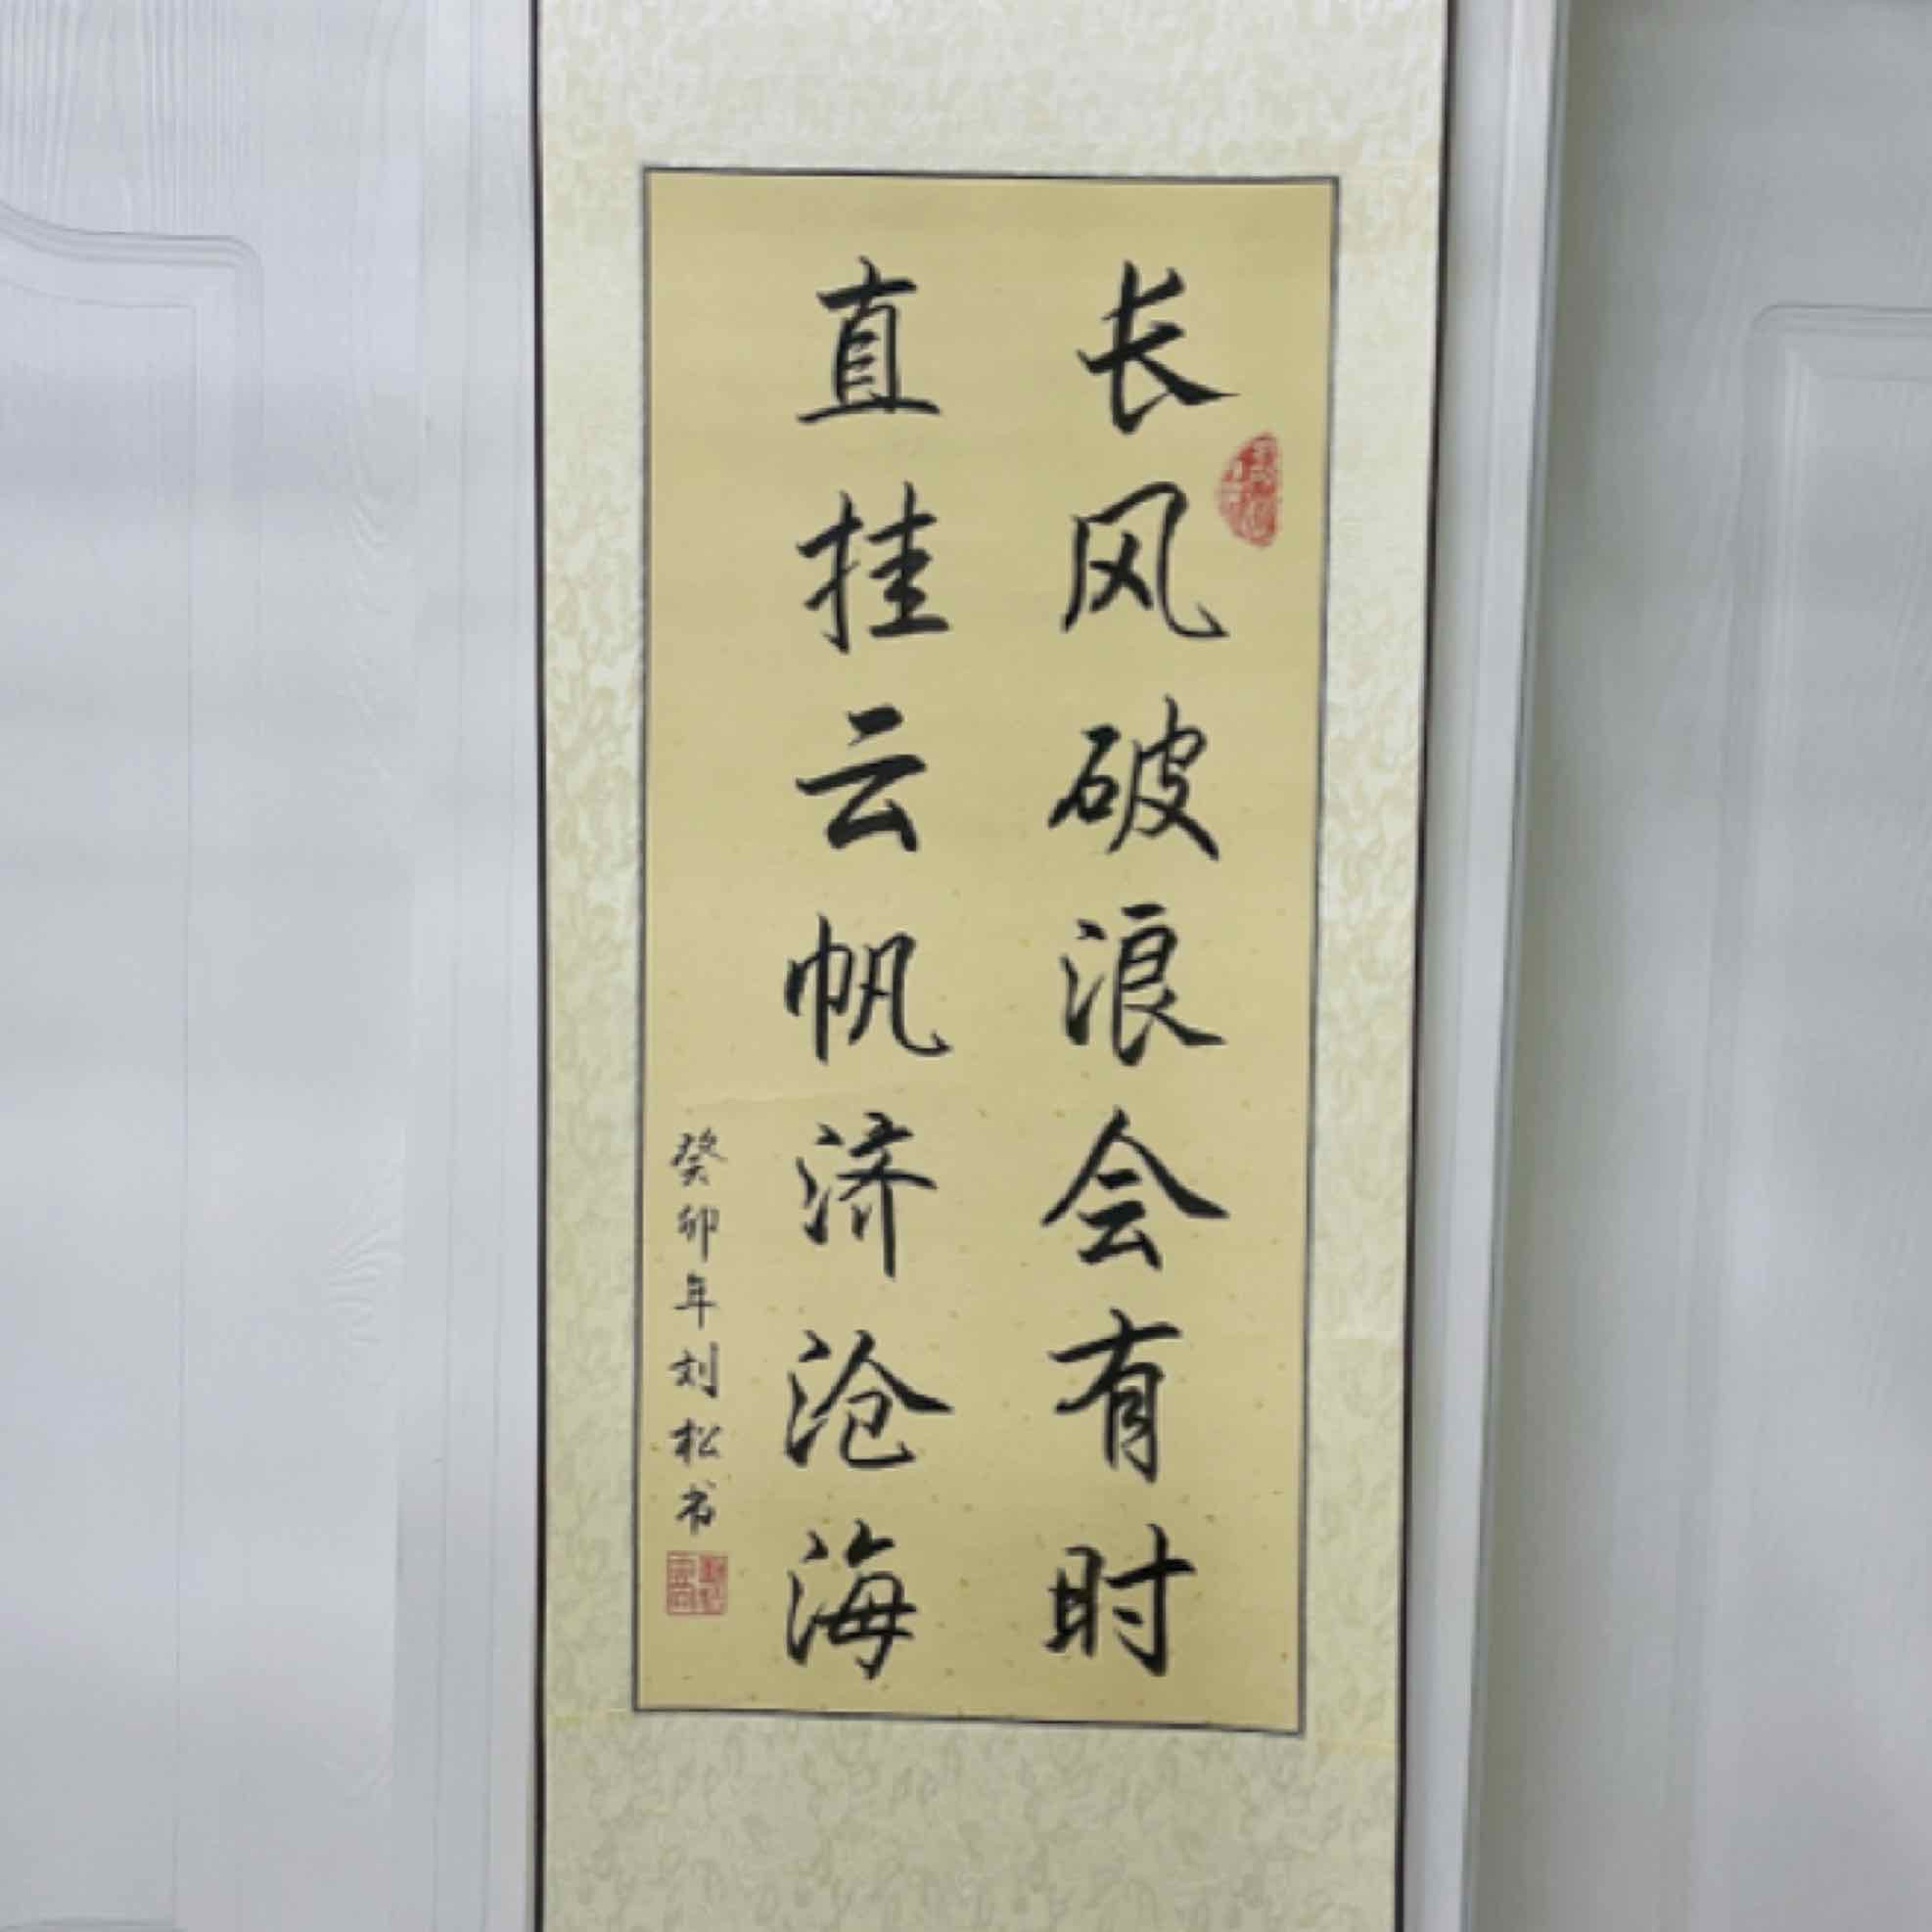 长风破浪会有时
直挂云帆济沧海
癸卯年刘松书